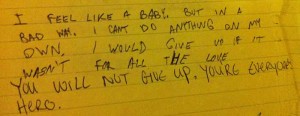 I FEEL LIKE A BABY. BUT IN A
BAD WAY. I CANT DO ANYTHING ON MY
OWN. I WOULD GIVE UP IF IT
WASN'T FOR ALL THE LOVE
YOU WILL NOT GIVE UP. YOURE EVERYONES
HERO.